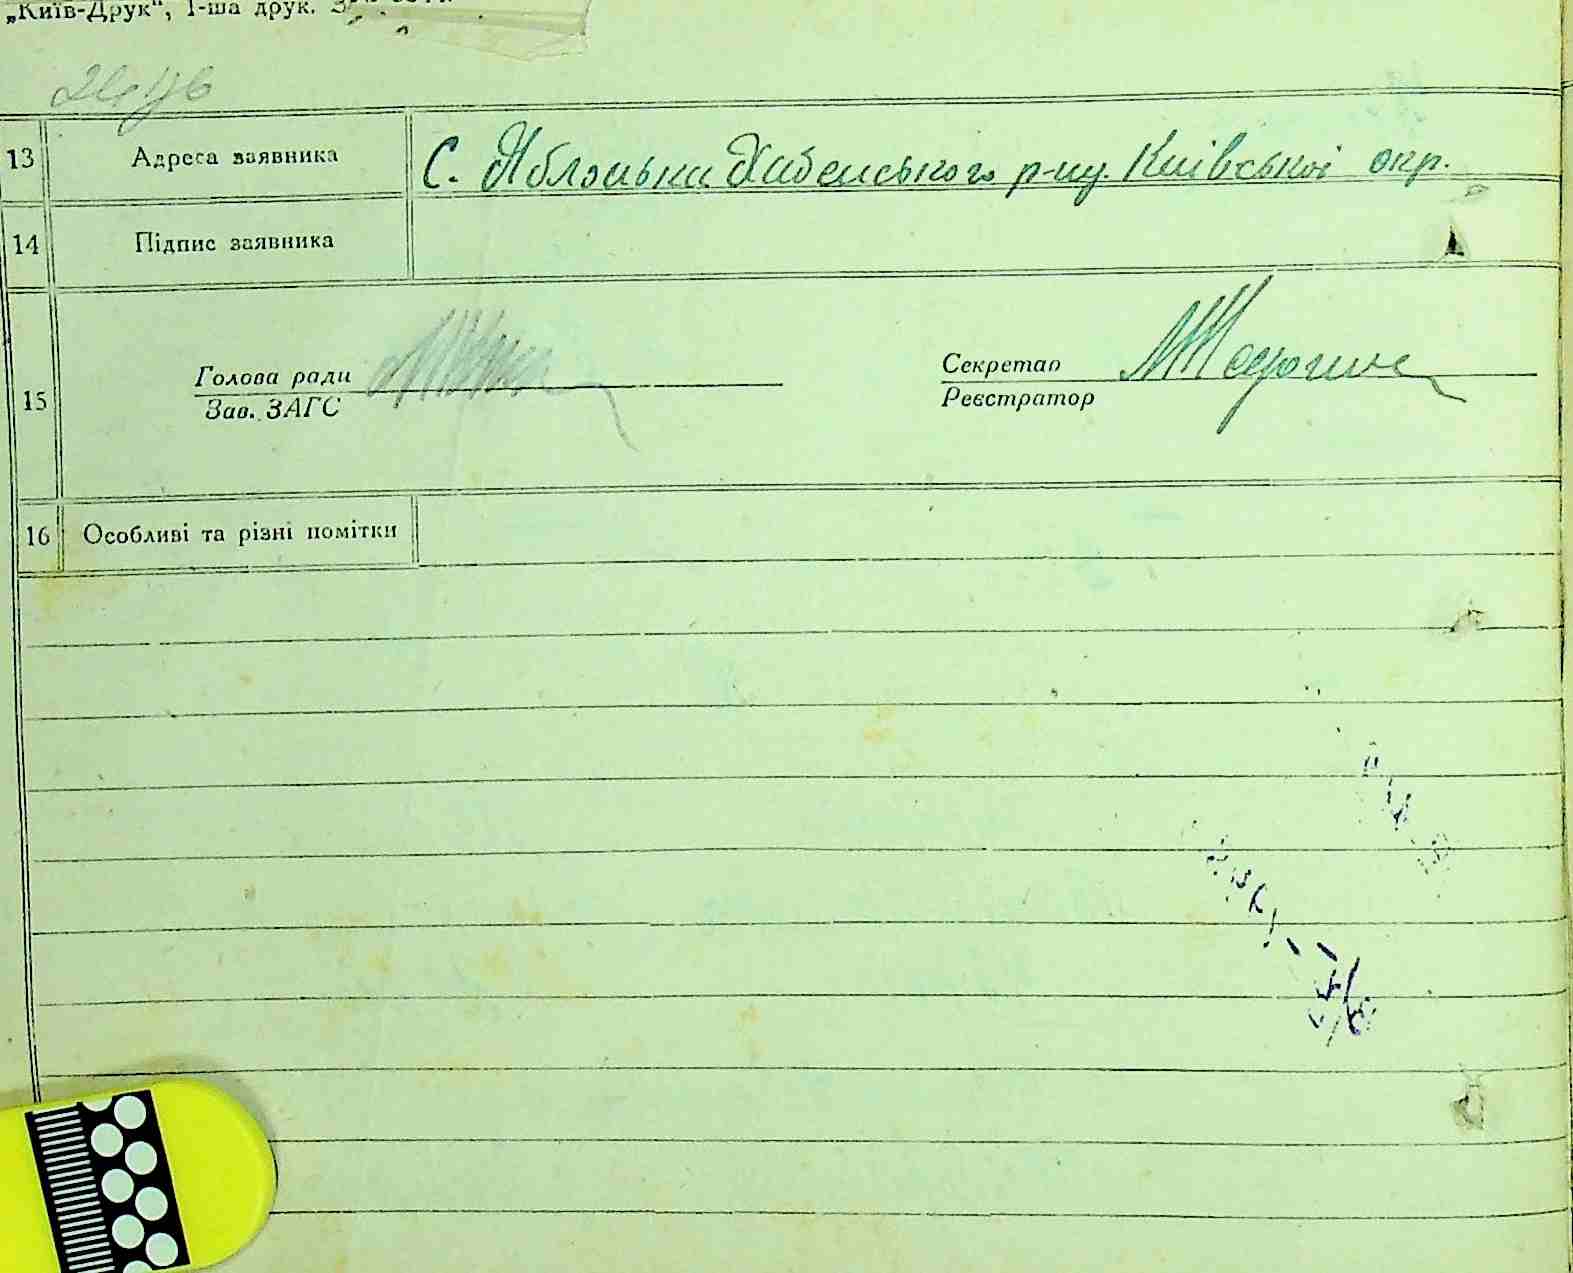 „Київ-Друк", 1-ша друк.
13 Адреса заявника С. Яблонька Хабенського р-ну. Київської окр.
14 Підпис заявника
15 Голова ради
Зав. ЗАГС
Секретар
Реєстратор
16 Особливі та різні помітки